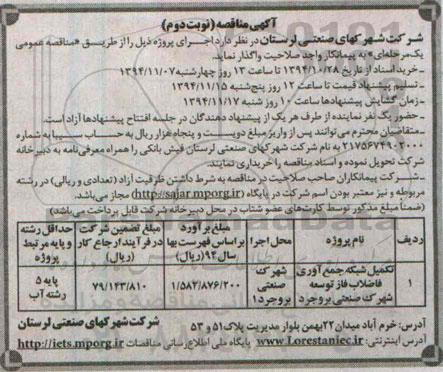 آگهی مناقصه (نوبت دوم)
شرکت شهرکهای صنعتی لرستان در نظر دارد اجرای پروژه ذیل را از طریق «مناقصه عمومی
یک مرحله‌ای» به پیمانکار واجد صلاحیت واگذار نماید.
- خرید اسناد از تاریخ ۱۳۹۴/۱۰/۲۸ تا ساعت ۱۳ روز چهارشنبه ۱۳۹۴/۱۱/۰۷
- تسلیم پیشنهاد قیمت تا ساعت ۱۲ روز پنج‌شنبه ۱۳۹۴/۱۱/۱۵
- زمان گشایش پیشنهادها ساعت ۱۰ روز شنبه ۱۳۹۴/۱۱/۱۷
- حضور یک نفر نماینده از طرف هر یک از پیشنهاد دهندگان در جلسه افتتاح پیشنهادها آزاد است.
- متقاضیان محترم می‌توانند پس از واریز مبلغ دویست و پنجاه هزار ریال به حساب سیبا به شماره
۲۱۷۵۶۷۴۹۰۲۰۰۰ به نام شرکت شهرکهای صنعتی لرستان فیش بانکی را همراه معرفی‌نامه به دبیرخانه
شرکت تحویل نموده و اسناد مناقصه را خریداری نمایند.
- شرکت پیمانکاران صاحب صلاحیت در مناقصه به شرط داشتن ظرفیت آزاد (تعدادی و ریالی) در رشته
مربوطه و نیز معتبر بودن اسم شرکت در پایگاه (http://sajar.mporg.ir) مجاز می‌باشد.
(ضمناً مبلغ مذکور توسط کارت‌های عضو شتاب در محل دبیرخانه شرکت قابل پرداخت می‌باشد)
ردیف | نام پروژه | محل اجرا | مبلغ برآورد براساس فهرست بهای سال ۹۴ (ریال) | مبلغ تضمین شرکت در فرآیند ارجاع کار (ریال) | حداقل رشته و پایه مرتبط پروژه
۱ | تکمیل شبکه جمع آوری فاضلاب فاز توسعه شهرک صنعتی بروجرد | شهرک صنعتی بروجرد ۱ | ۱/۵۸۲/۸۷۶/۲۰۰ | ۷۹/۱۴۳/۸۱۰ | پایه ۵ رشته آب
آدرس: خرم آباد میدان ۲۲ بهمن بلوار مدیریت پلاک ۵۱ و ۵۳
شرکت شهرکهای صنعتی لرستان
آدرس اینترنتی: www.Lorestaniec.ir پایگاه ملی اطلاع‌رسانی مناقصات http://iets.mporg.ir